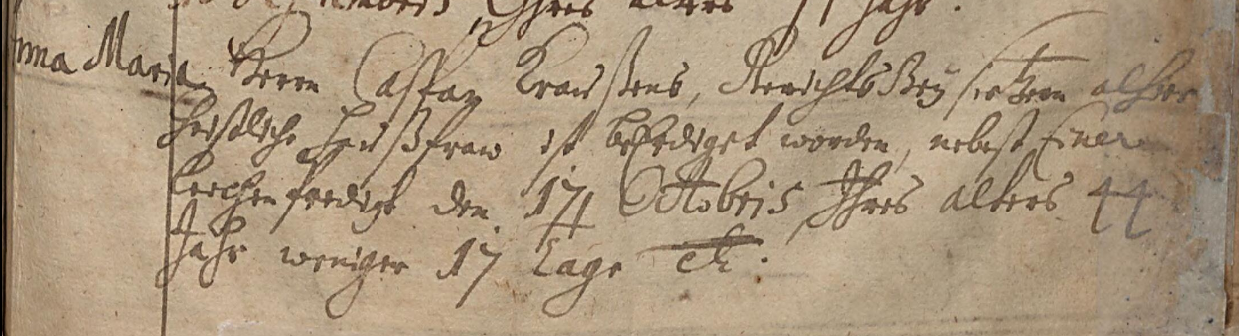 Septembris Ihres alters 51 Jahr.
Anna Maria, Herrn Caspar Kraußens, Gerichts Beysitzern alhier
Eheliche Haußfraw ist beerdiget worden, nebst Einer
Leichenpredigt den 17 Octobris Ihres alters 44
Jahr weniger 17 Tage etc.